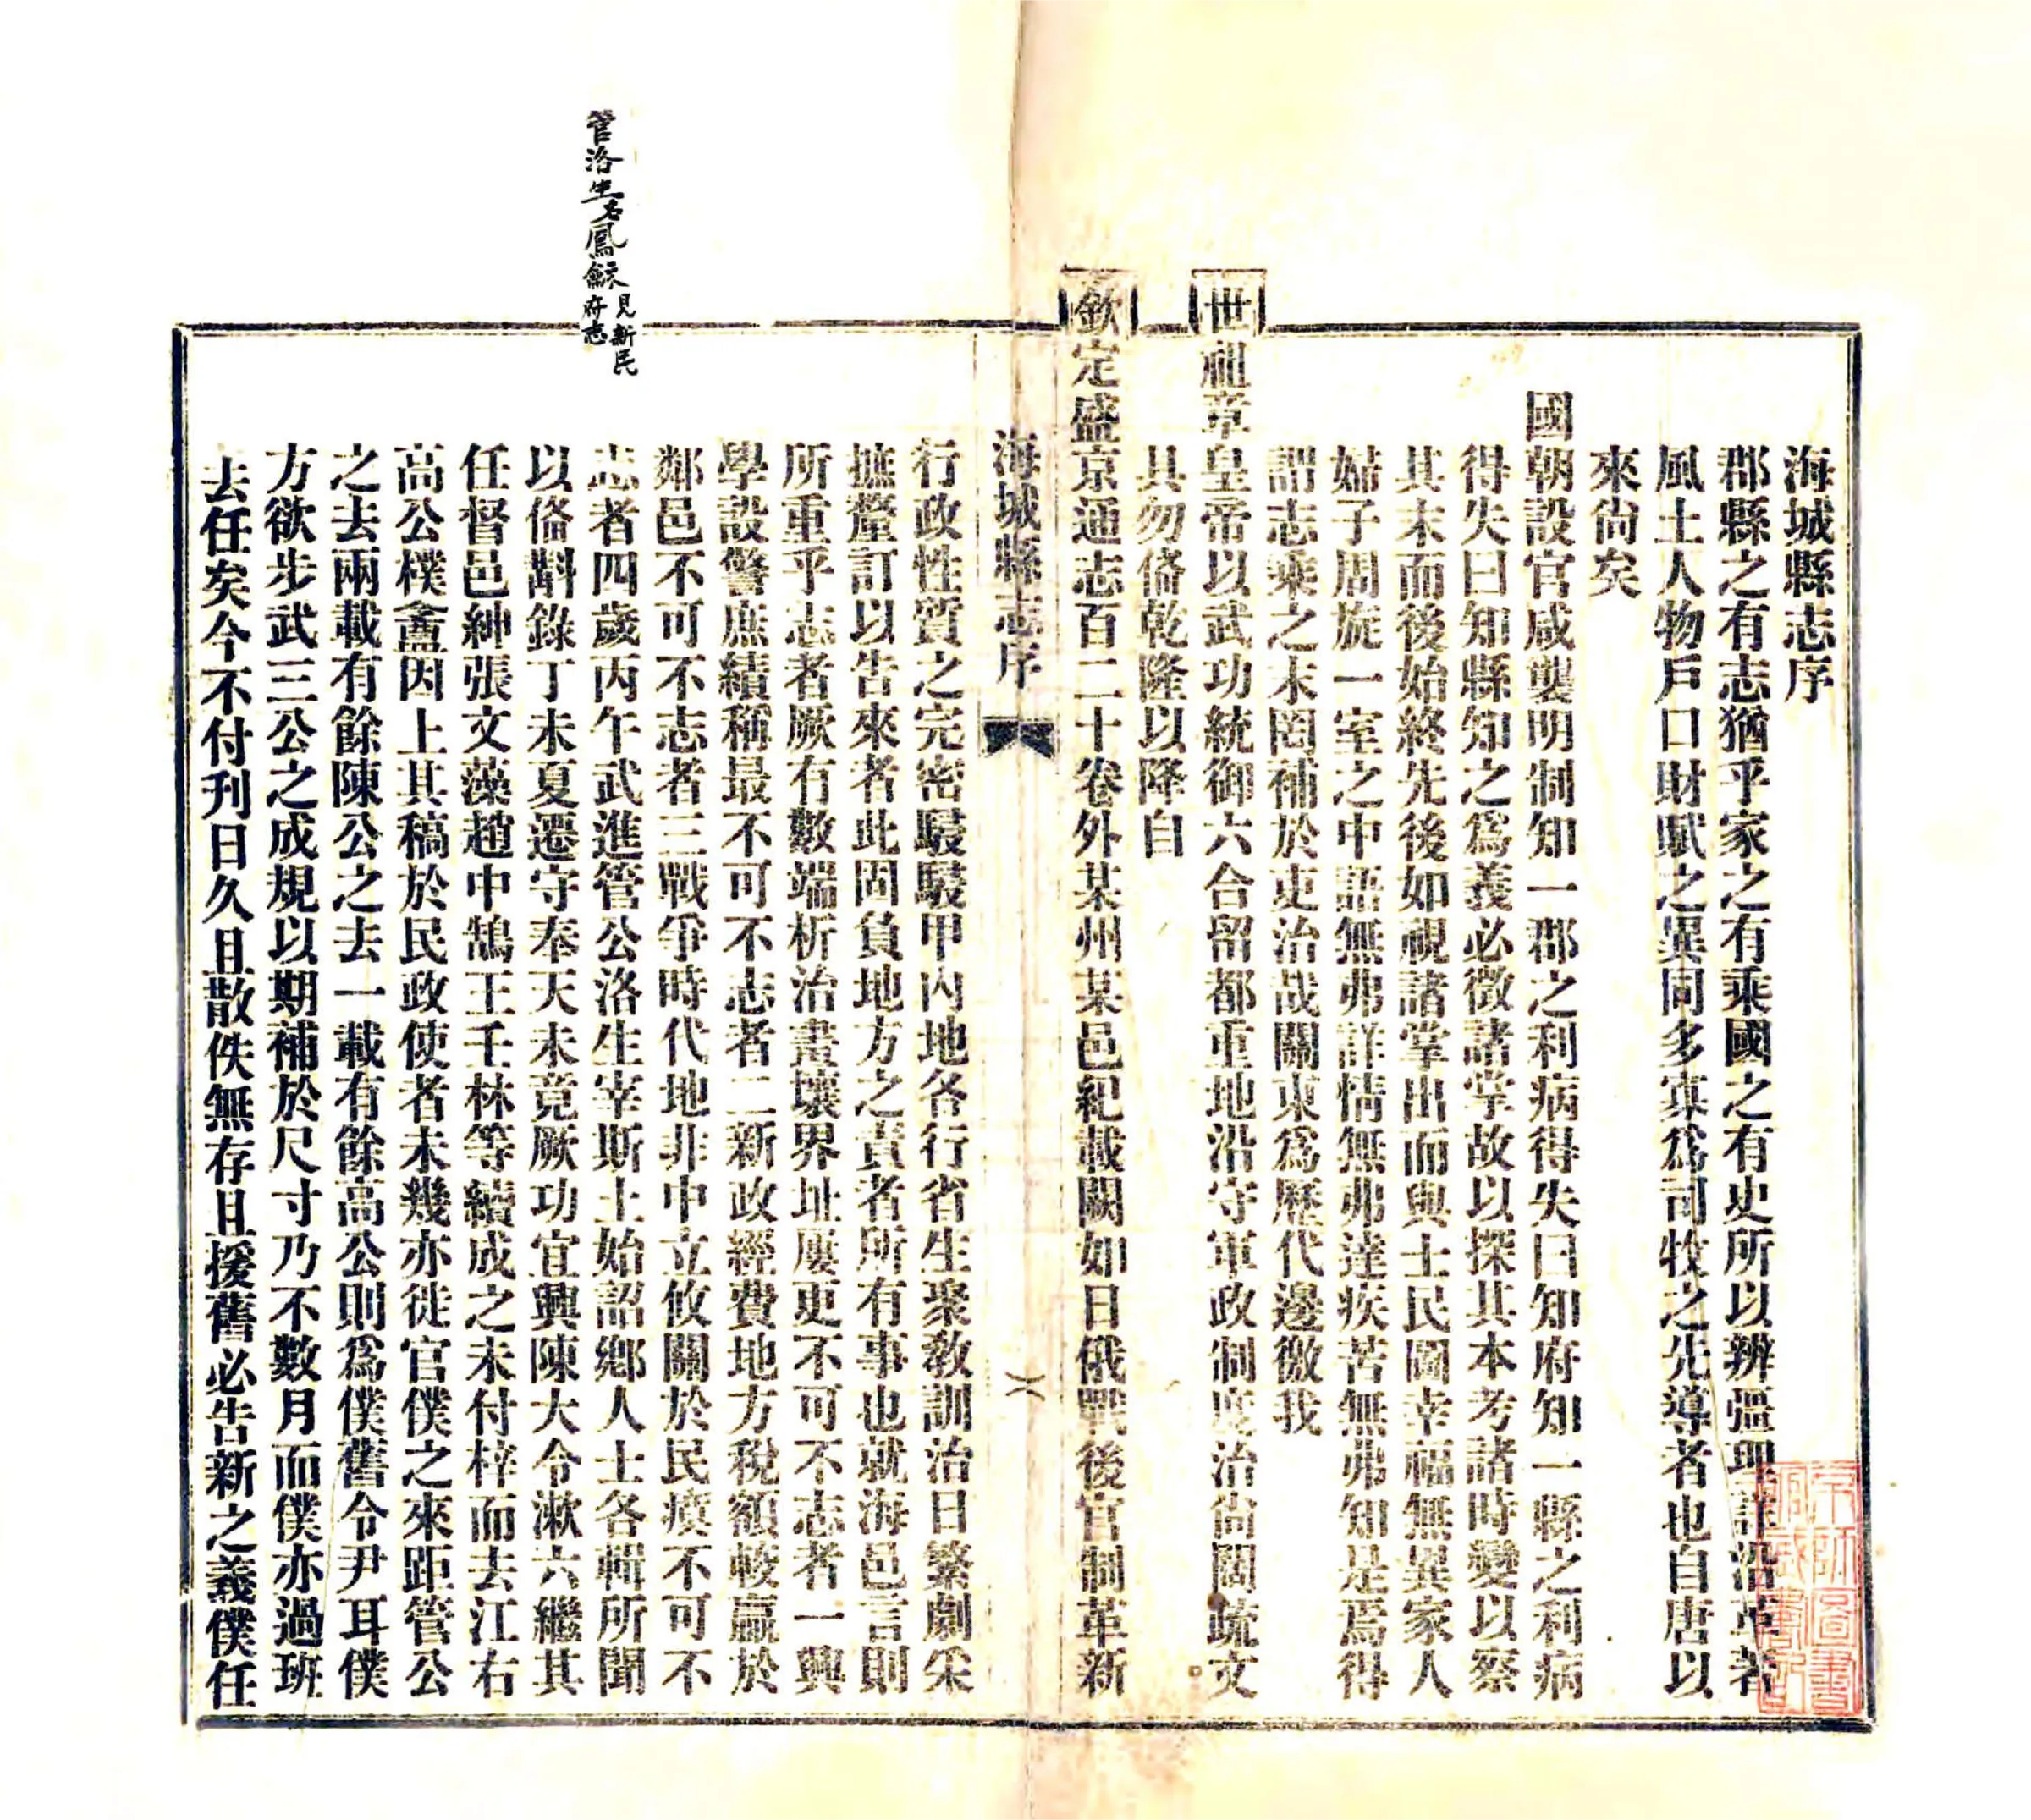 海城縣志序
郡縣之有志猶乎家之有乘國之有史所以辨彊理詳沿革著
風土人物戶口財賦之異同多寡爲司牧之先導者也自唐以
來尙矣
國朝設官咸襲明制知一郡之利病得失曰知府知一縣之利病
得失曰知縣知之爲義必徵諸掌故以探其本考諸時變以察
其末而後始終先後如視諸掌出而與士民圖幸福無異家人
婦子周旋一室之中語無弗詳情無弗達疾苦無弗知是焉得
謂志乘之末罔補於吏治哉關東爲歷代邊徼我
世祖章皇帝以武功統御六合留都重地沿守軍政制度治尙闊疏文
具勿俻乾隆以降自
欽定盛京通志百二十卷外某州某邑紀載闕如日俄戰後官制革新
海城縣志序
行政性質之完密駸駸甲內地各行省生聚敎訓治日繁劇采
摭釐訂以告來者此固負地方之責者所有事也就海邑言則
所重乎志者厥有數端析治畫壤界址屢更不可不志者一興
學設警庶績稱最不可不志者二新政經費地方稅額較贏於
鄰邑不可不志者三戰爭時代地非中立攸關於民瘼不可不
志者四歲丙午武進管公洛生宰斯土始詔鄕人士各輯所聞
以俻斟錄丁未夏遷守奉天未竟厥功宜興陳大令漱六繼其
任督邑紳張文藻趙中鵠王壬林等續成之未付梓而去江右
高公樸盦因上其稿於民政使者未幾亦徙官僕之來距管公
之去兩載有餘陳公之去一載有餘高公則爲僕舊令尹耳僕
方欲步武三公之成規以期補於尺寸乃不數月而僕亦過班
去任矣今不付刊日久且散佚無存且援舊必告新之義僕任
管洛生名鳳龢
見新民
府志
京師圖書
館藏書記